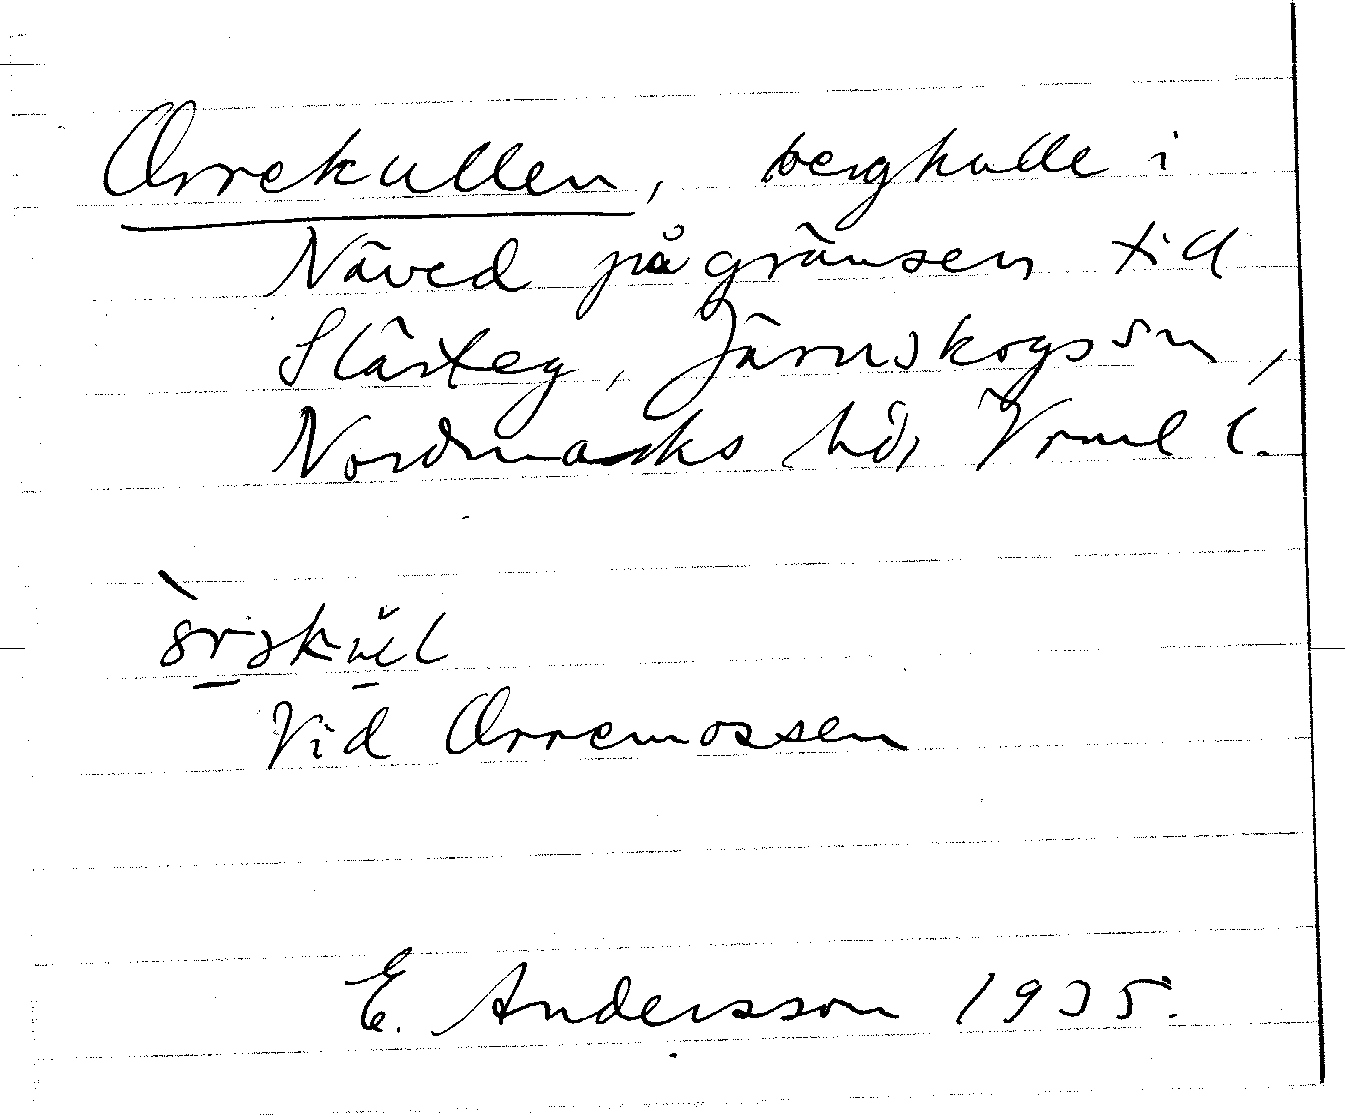 Orrekullen, bergkulle i
Näved på gränsen till
Slärteg, Järnskogs sn,
Nordmarks hd, Vrml l.
Vid Orremossen
E. Andersson 1935.